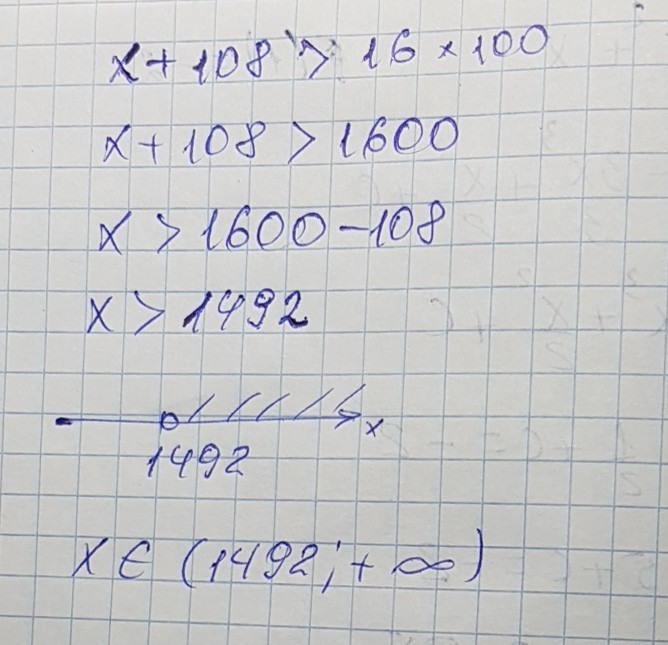 x + 108 > 16 × 100
x + 108 > 1600
x > 1600 - 108
x > 1492
x
1492
x ∈ (1492; + ∞)